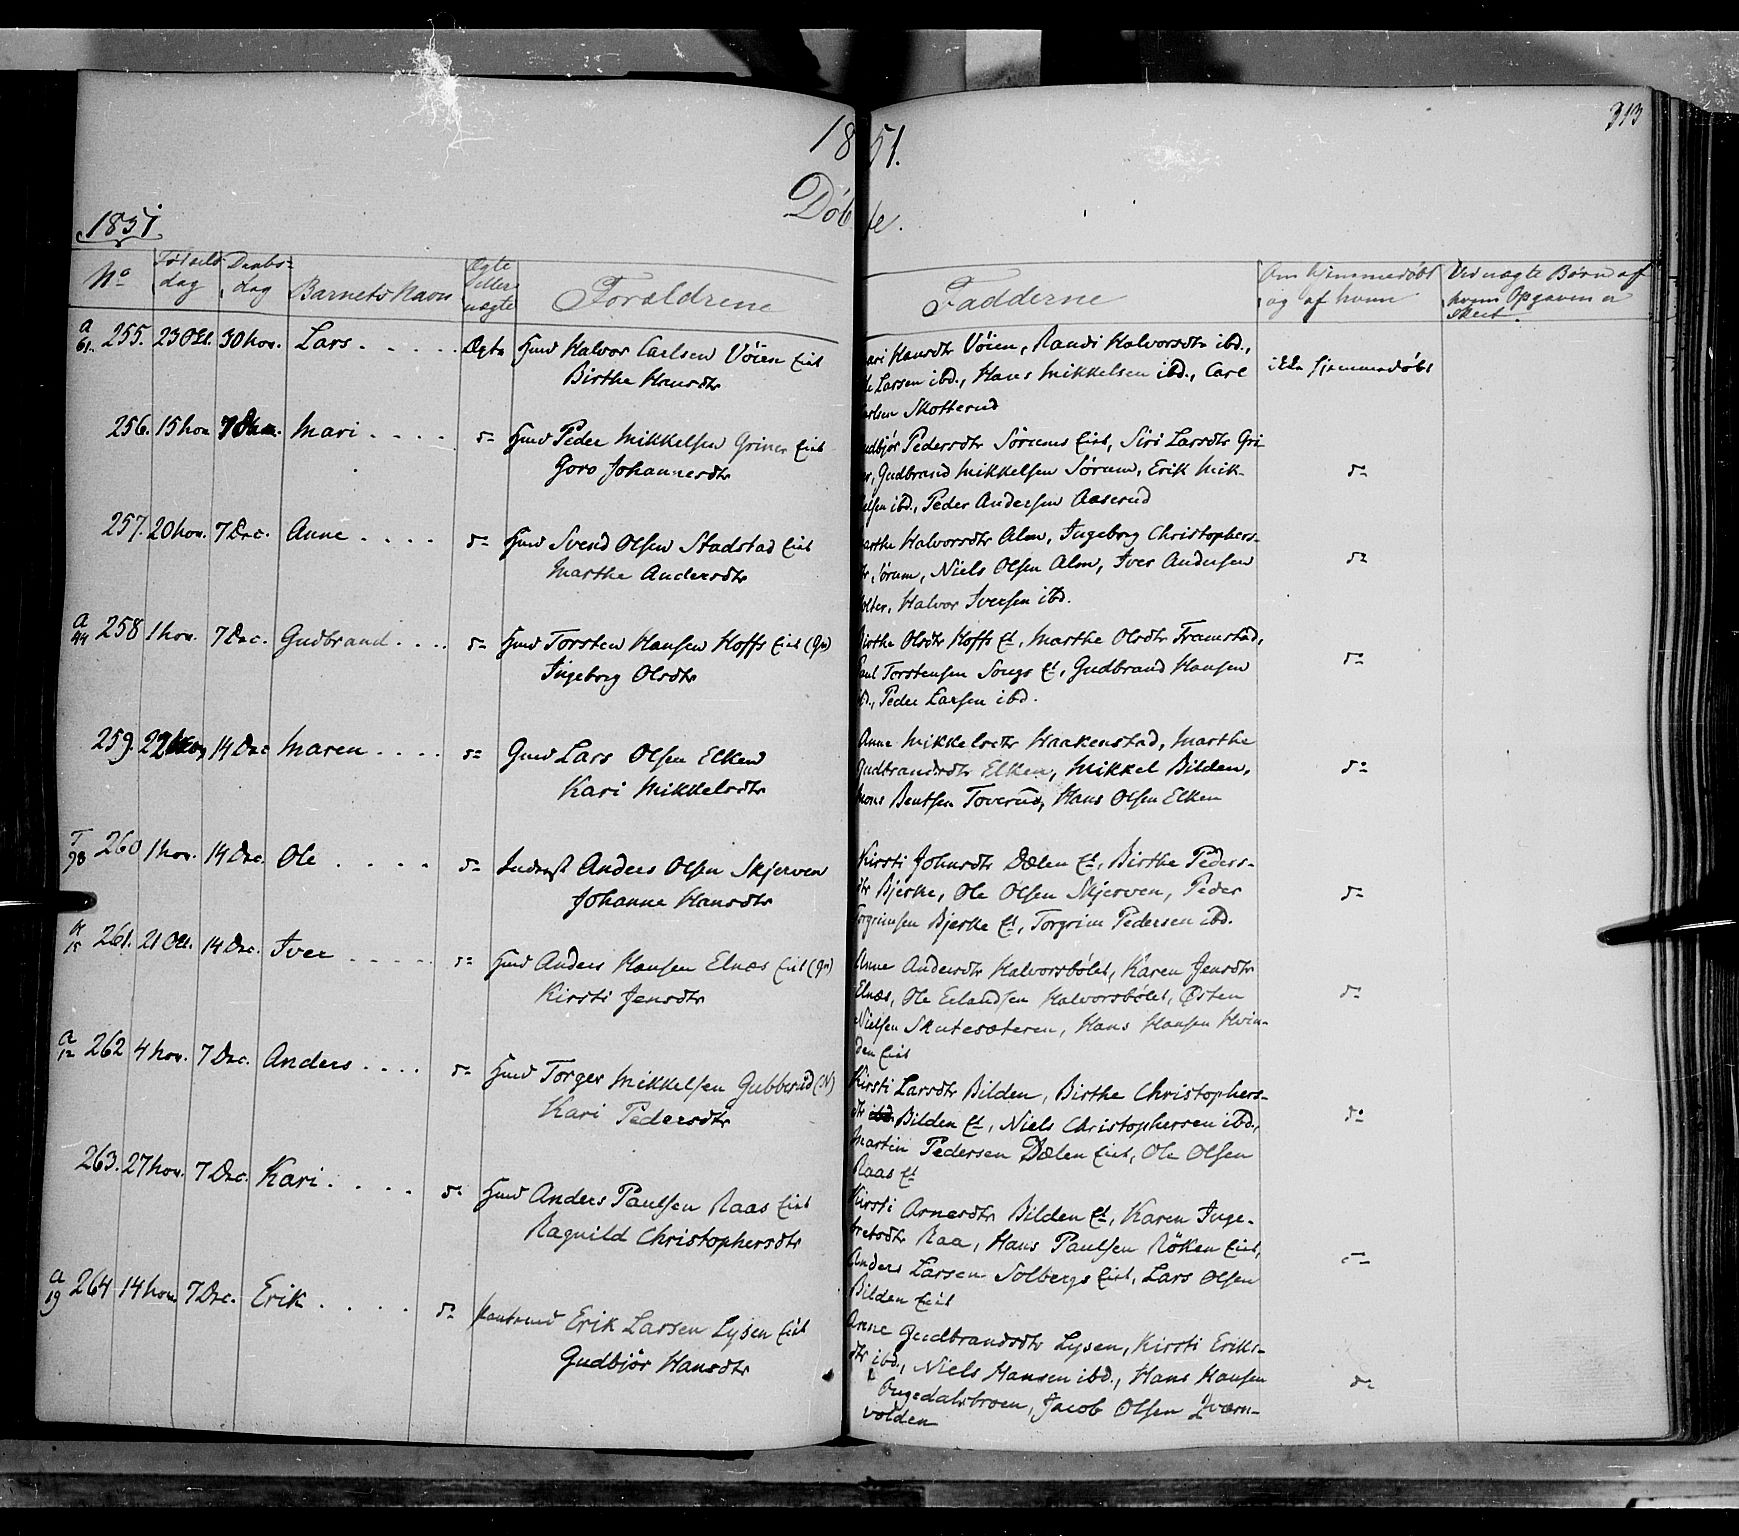 313
1851.
Döbte.
1851.
No Födsels dag Daabs= dag Barnets Navn Ægte eller uægte Forældrene Fadderne Om hjemmedøbt og af hvem Ved uægte Børn af hvem Opgaven er skeet.
a 61. 255. 23 Oct. 30 Nov. Lars . . . . . Ægte Gmd Halvor Carlsen Vöien Eiet
Birthe Hansdtr
Kari Hansdtr Vöien, Randi Halvorsdtr ibd.,
Ole Larsen ibd., Hans Mikkelsen ibd., Carl
Carlsen Skotterud
ikke hjemmedøbt
256. 15 Nov 7 Dec. Mari . . . . do Hmd Peder Mikkelsen Griner Eiet
Goro Johannesdtr
Gudbjør Pedersdtr Sörums Eiet, Siri Larsdtr Gri-
ner, Gudbrand Mikkelsen Sörum, Erik Mik-
kelsen ibd., Peder Andersen Aaserud
do
257. 20 Nov. 7 Dec. Anne . . . . do Hmd Svend Olsen Stadstad Eiet
Marthe Andersdtr
Marthe Halvorsdtr Alm, Ingeborg Christophers-
dtr Sörum, Niels Olsen Alm, Iver Andersen
Holter, Halvor Iversen ibd.
do
a 44 258 1 Nov. 7 Dec. Gudbrand . . . . do Hmd Torsten Hansen Hoffs Eiet (Gr)
Ingeborg Olsdtr
Birthe Olsdtr Hoffs Et, Marthe Olsdtr Framstad,
Paul Torstensen Sougs Et, Gudbrand Hansen
ibd., Peder Larsen ibd.
do
259. 22 Nov 14 Dec Maren . . . . do Gmd Lars Olsen Elken
Kari Mikkelsdtr
Anne Mikkelsdtr Haakenstad, Marthe
Gudbrandsdtr Elken, Mikkel Bilden,
Mons Bentsen Toverud, Hans Olsen Elken
do
T 98 260 1 Nov. 14 Dec. Ole . . . . do Inderst Anders Olsen Skjerven
Johanne Hansdtr
Kirsti Johnsdtr Dælen Et, Birthe Peders-
dtr Bjerke, Ole Olsen Skjerven, Peder
Torgrimsen Bjerke Et, Torgrim Pedersen ibd.
do
a 15 261. 21 Oct. 14 Dec. Iver . . . . . do Hmd Anders Hansen Elnæs Eiet (Gr)
Kirsti Jensdtr
Anne Andersdtr Halvorsbölet, Karen Jensdtr
Elnæs, Ole Erlandsen Halvorsbölet, Østen
Nielsen Skutesæteren, Hans Hansen Hvin-
den Eiet
do
a 12 262 4 Nov. 7 Dec. Anders . . . . do Hmd Torger Mikkelsen Gubberud (N)
Kari Pedersdtr
Kirsti Larsdtr Bilden, Birthe Christophers-
dtr Bilden Et, Niels Christophersen ibd.,
Martin Pedersen Dælen Eiet, Ole Olsen
Raas Et
do
263. 27 Nov. 7 Dec. Kari . . . . do Hmd Anders Paulsen Raas Eiet
Ragnild Christophersdtr
Kirsti Arnesdtr Bilden Et, Karen Inge-
bretsdtr Raa, Hans Paulsen Röken Eiet,
Anders Larsen Solbergs Eiet, Lars Olsen
Bilden Eiet
a 19 264 14 Nov. 7 Dec. Erik . . . . do Kantmd Erik Larsen Lysen Eiet
Gudbjör Hansdtr
Anne Gudbrandsdtr Lysen, Kirsti Eriks-
dtr ibd., Niels Hansen ibd., Hans Hansen
Ongedalsbroen, Jacob Olsen Kværn-
volden
do